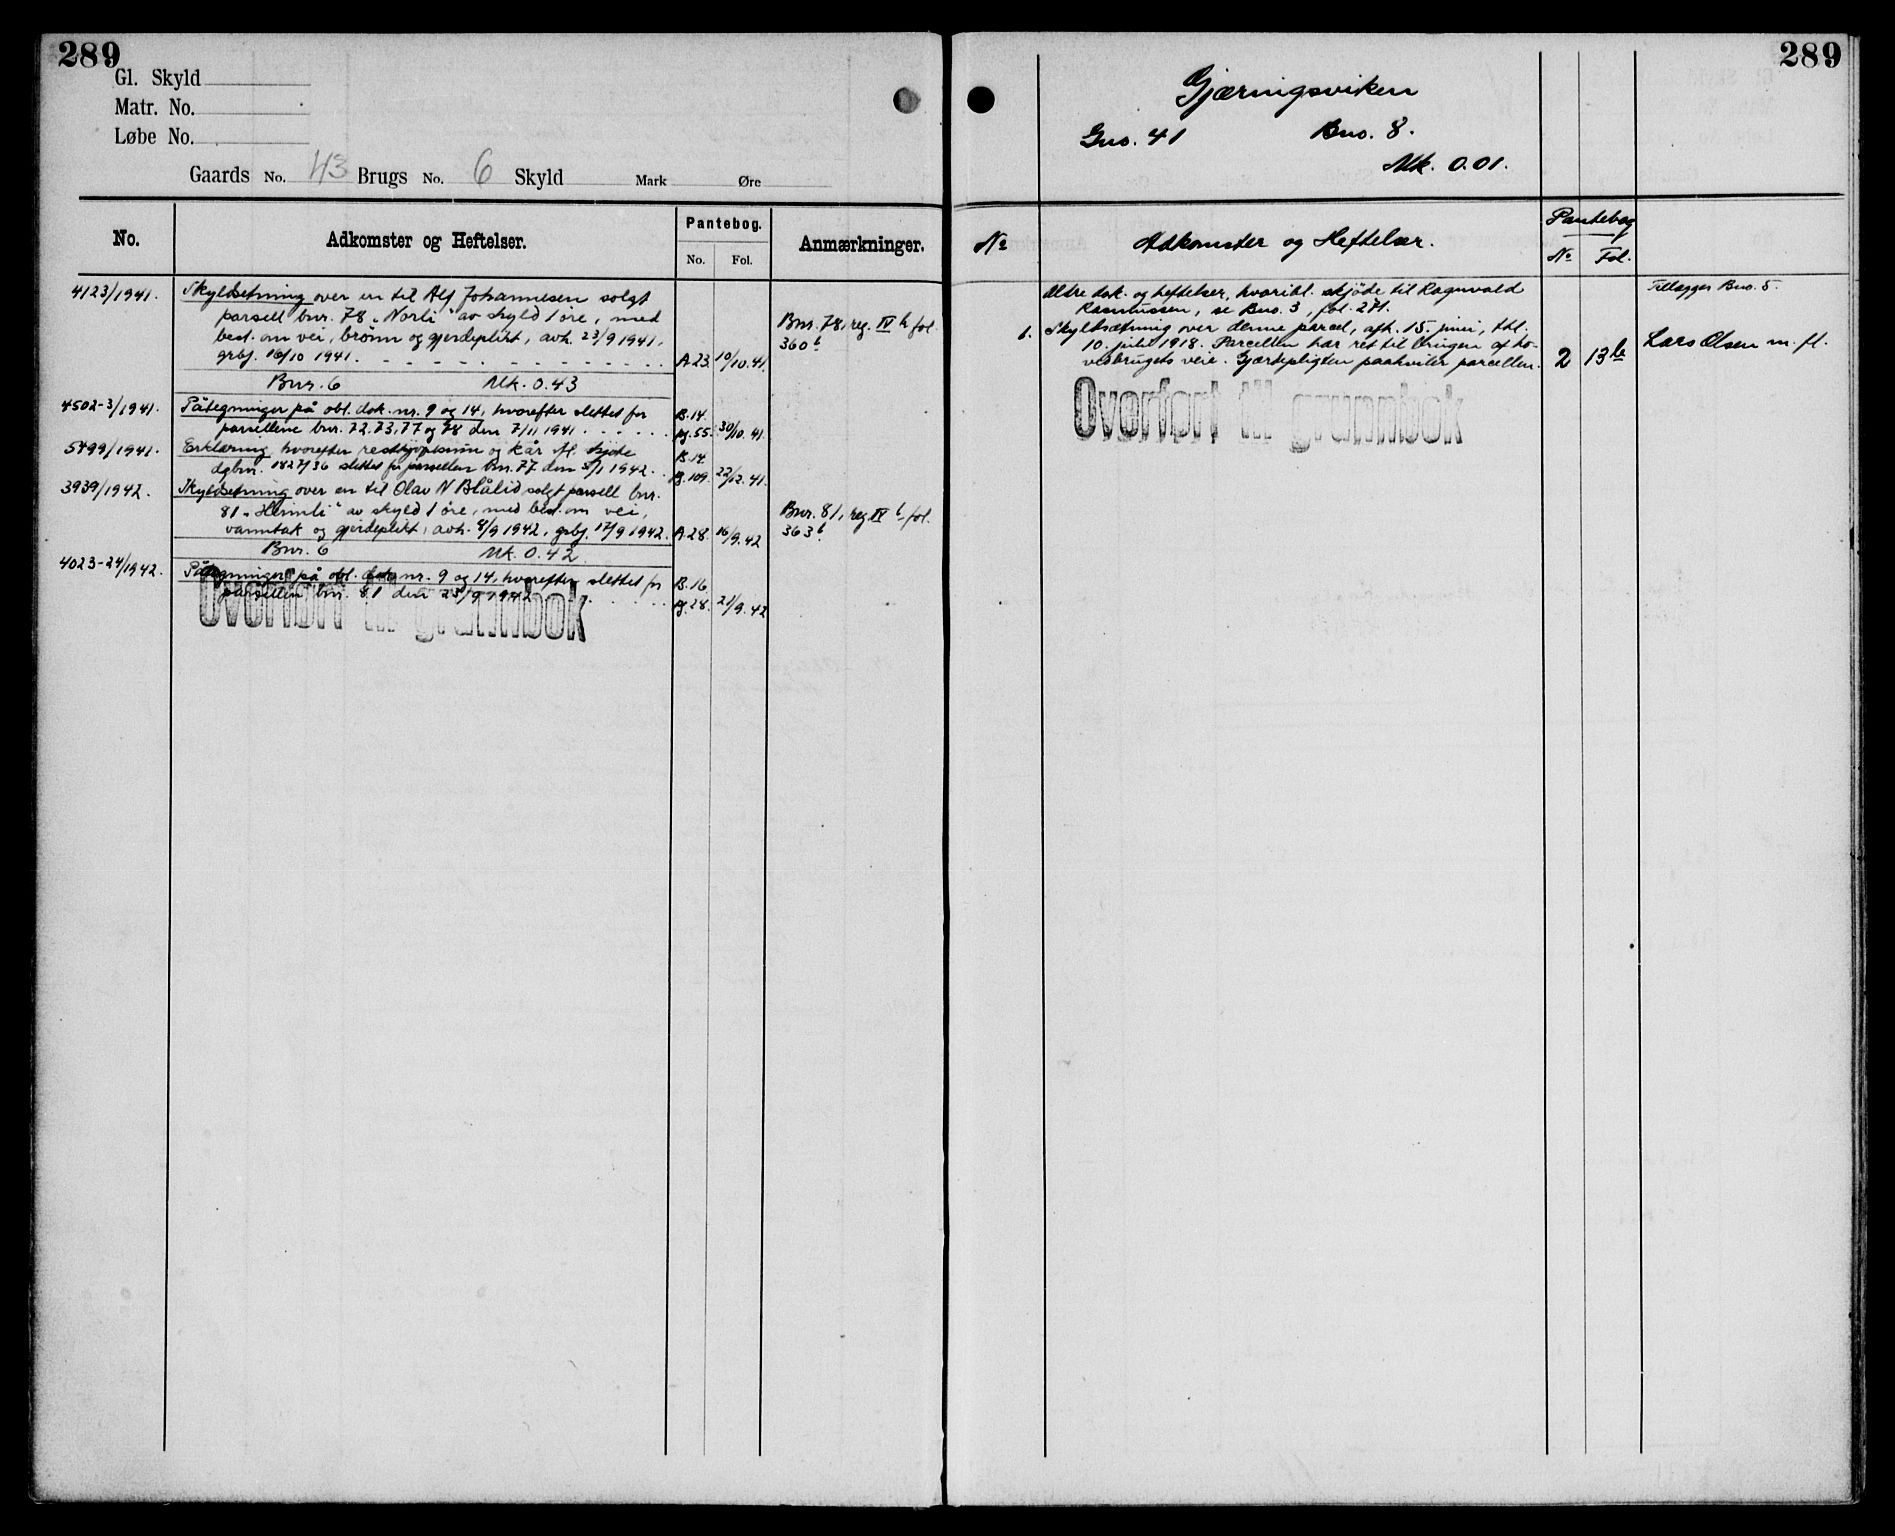 289
Gl. Skyld
Matr. No.
Løbe No.
Gaards No. 43 Brugs No. 6 Skyld Mark Øre
No. Adkomster og Heftelser. Pantebog. Anmærkninger.
No. Fol.
4123/1941. Skyldsetning over en til Alf Johannesen solgt
parsell bnr. 78 „Norli" av skyld 1 øre, med
best. om vei, brønn og gjerdeplikt, avh. 23/9 1941,
grbj. 16/10 1941. A.23. 10/10.41.
Bnr. 78, reg. IV b fol.
360 b
Bnr. 6 Mk. 0.43
4502-3/1941. Påtegninger på obl. dok. nr. 9 og 14, hvorefter slettet for
parsellene bnr. 72, 73, 77 og 78 den 7/11 1941 B.14. pg. 55. 30/10.41.
5499/1941. Erklæring hvorefter restkjøpesum og kår fl. skjøte
dgbnr. 1827/36 slettet for parsellen bnr. 77 den 5/1 1942. B.14. pg. 109. 22/12.41.
3939/1942. Skyldsetning over en til Olav N Blålid solgt parsell bnr.
81 „Heimli" av skyld 1 øre, med best. om vei,
vanntak og gjerdeplikt, avh. 8/9 1942, grbj. 17/9 1942. A.28. 16/9.42
Bnr. 81, reg IV b fol.
363 b
Bnr. 6 Mk. 0.42
4023-24/1942. Påtegninger på obl. dok. nr. 9 og 14, hvorefter slettet for
parsellen bnr. 81 den 23/9 1942 B.16. pg. 28. 21/9.42
Overført til grunnbok
289
Gjærningsviken
Gno. 41 Bno. 8.
Mk. 0.01.
No Adkomster og Heftelser. Pantebog
No Fol.
Ældre dok. og heftelser, hvoribl. skjøde til Ragnvald
Rasmussen, se Bno. 3, fol. 271.
Tillægges Bno. 5
1. Skyldsætning over denne parcel, afh. 15. juni, thl.
10. juli 1918. Parcellen har ret til brugen af ho-
vedbrugets veie. Gjærdepligten paahviler parcellen. 2 13b
Lars Olsen m. fl.
Overført til grunnbok